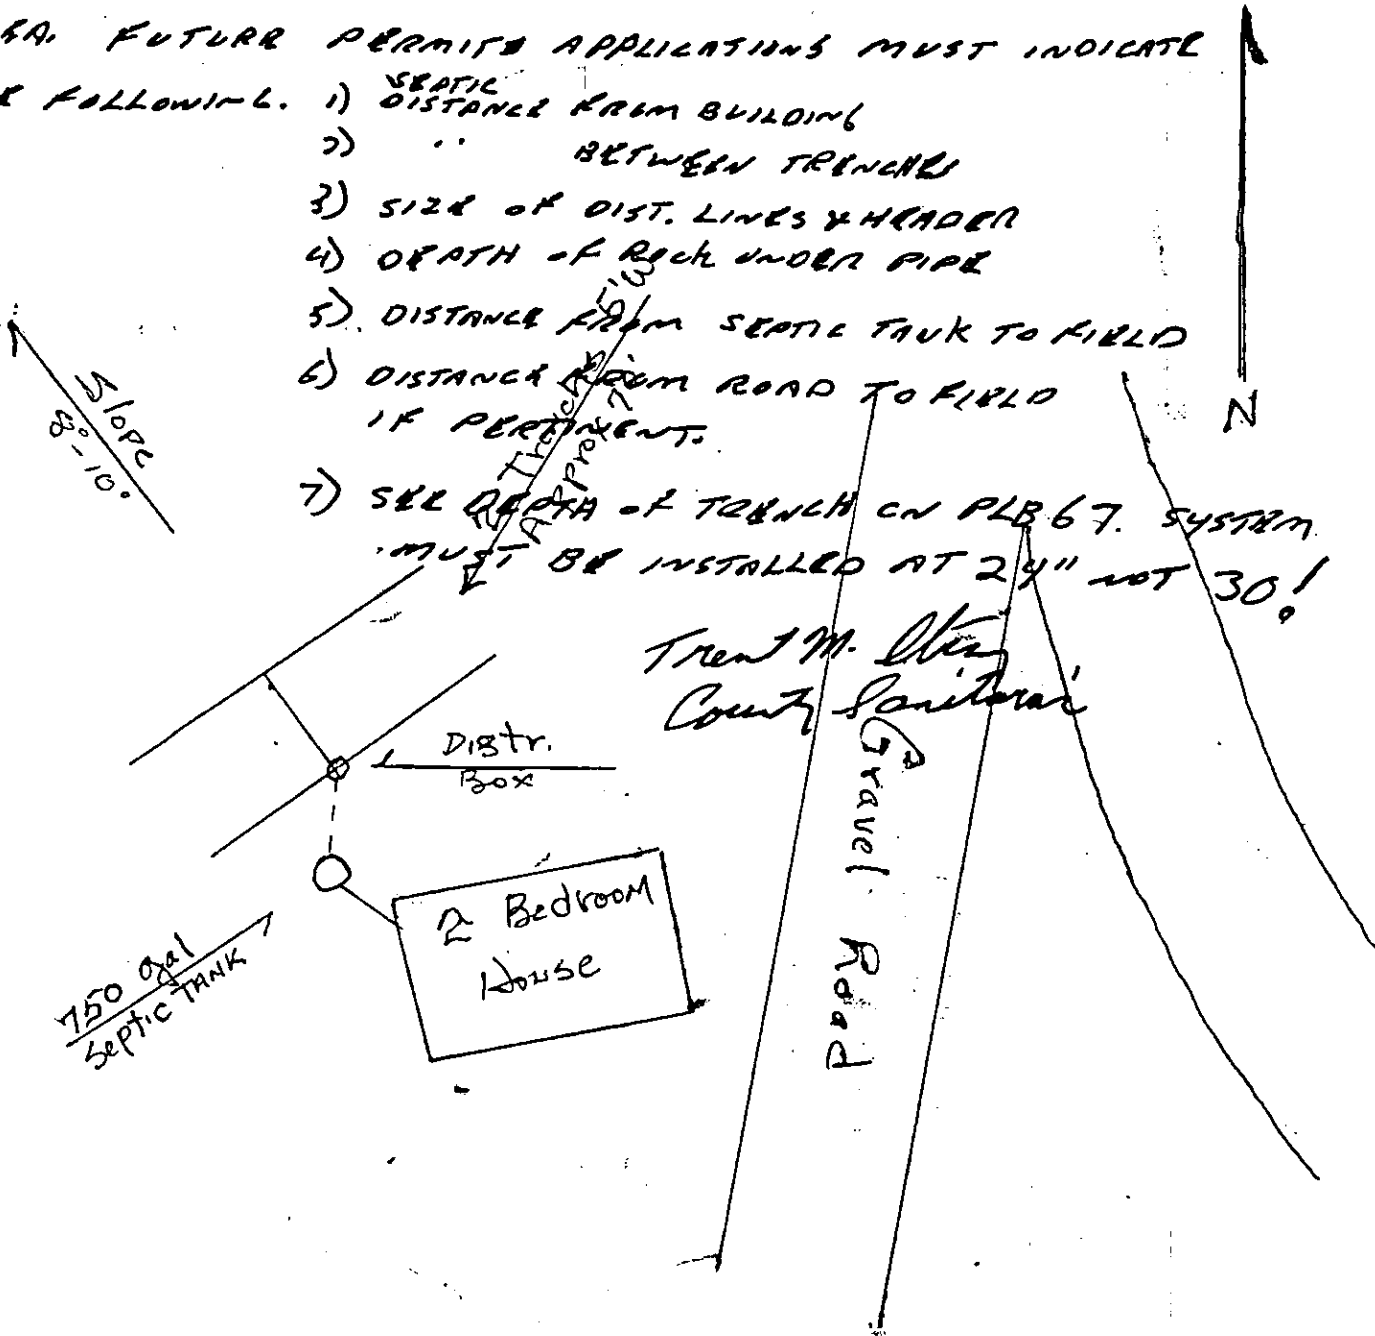 FUTURE PERMITS APPLICATIONS MUST INDICATE
FOLLOWING. 1) SEPTIC DISTANCE FROM BUILDING
2) " BETWEEN TRENCHES
3) SIZE OF DIST. LINES & HEADER
4) DEPTH OF ROCK UNDER PIPE
5) DISTANCE FROM SEPTIC TANK TO FIELD
6) DISTANCE FROM ROAD TO FIELD
IF PERTINENT.
7) SEE DEPTH OF TRENCH ON PLB 67. SYSTEM
MUST BE INSTALLED AT 24" NOT 30!
Trent M.
County Sanitarian
N
Slope
8° - 10°
2 Trenches 5'W
Approx 7
Distr.
Box
Gravel Road
2 Bedroom
House
750 gal
Septic TANK